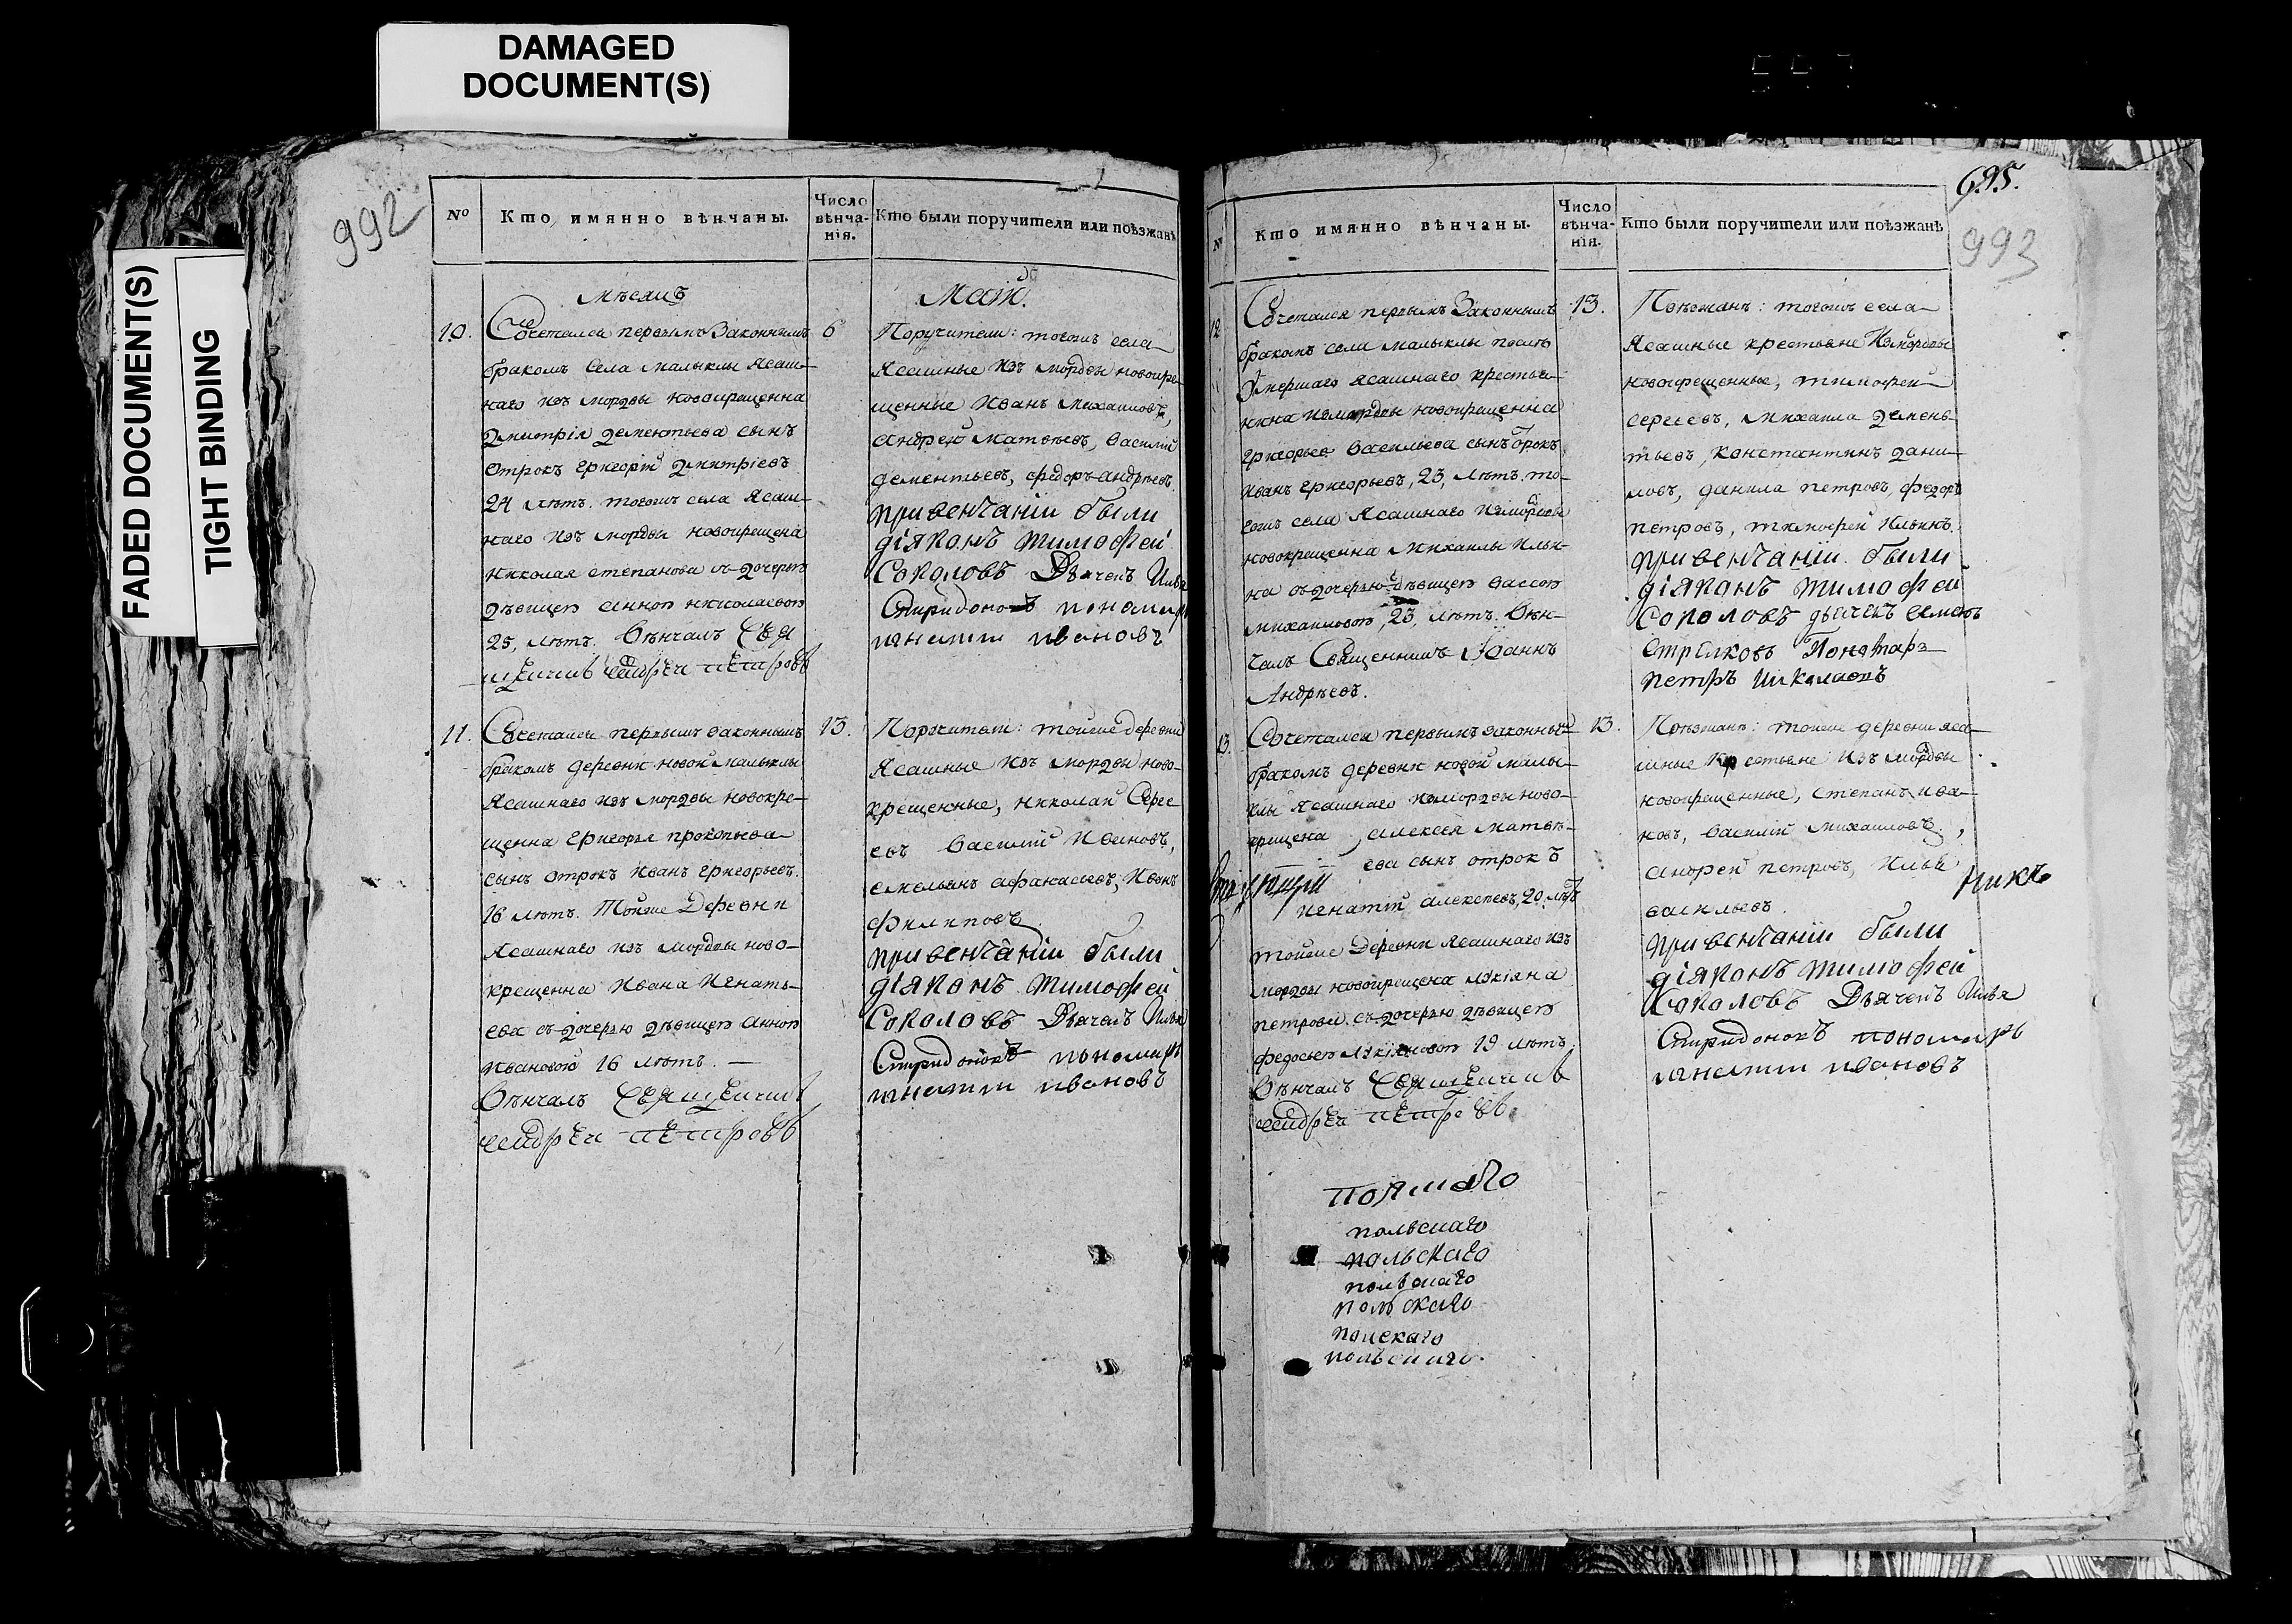 DAMAGED
DOCUMENT(S)
FADED DOCUMENT(S)
TIGHT BINDING
992
№
Кто имянно вѣнчаны.
Число вѣнча-нія.
Кто были поручители или поѣзжанѣ
Мѣсяцъ
Маій.
10.
Сочетался первымъ Законнымъ
бракомъ Села малыклы Ясаш-
наго изъ мордвы новокрещенна
Дмитрія Дементьева сынъ
отрокъ Григорій Дмитріевъ
24 лѣтъ. тогожъ села Ясаш-
наго изъ мордвы новокрещена
Николая степанова съ дочерью
дѣвицею Анною николаевою
25, лѣтъ. Вѣнчалъ Свя
щенникъ Андрей Петровъ
6
Поручители: тогожъ села
Ясашные изъ мордвы новокре-
щенные Иванъ Михаиловъ,
Андрей Матвѣевъ, Василій
дементьевъ, федоръ андрѣевъ.
при венчаніи были
діяконъ тимофей
Соколовъ Дьячекъ Илья
Спиридоновъ пономарь
игнатій ивановъ
11.
Сочетался первымъ законнымъ
бракомъ деревни новой малыклы
Ясашнаго изъ мордвы новокре-
щенна Григорья прокопьева
сынъ отрокъ Иванъ Григорьевъ.
16 лѣтъ. Тойже Деревни
Ясашнаго изъ мордвы ново-
крещенна Ивана Игнать-
ева съ дочерью дѣвицею Анною
Ивановою 16 лѣтъ. —
Вѣнчалъ Священникъ
Андрей Петровъ
13.
Поручители: тойже деревни
Ясашные изъ мордвы ново-
крещенные, николай Серге
евъ Василій Ивановъ,
емельянъ афанасьевъ, Иванъ
Филиповъ
при венчаніи были
діяконъ тимофей
Соколовъ Дьячекъ Илья
Спиридоновъ пономарь
игнатіи ивановъ
695.
993
№
Кто имянно вѣнчаны.
Число вѣнча-нія.
Кто были поручители или поѣзжанѣ
12
Сочетался первымъ Законнымъ
бракомъ села малыклы послѣ
Умершаго ясашнаго крестья-
нина изъ мордвы новокрещенна
Григорья Васильева сынъ отрокъ
Иванъ Григорьевъ, 23, лѣтъ. то-
гожъ села Ясашнаго изъ мордвы
новокрещенна Михаилы Ильи-
на съ дочерью дѣвицею вассою
михаиловою, 23, лѣтъ. Вѣн-
чалъ Священникъ Іоаннъ
Андрѣевъ.
13.
Поѣзжанѣ: тогожъ села
Ясашные крестьяне Изъ мордвы
новокрещенные, тимофей
сергеевъ, михаила демень-
тьевъ, константинъ дани-
ловъ, данила петровъ, федоръ
петровъ, тимофей Ильинъ.
при венчаніи были
діяконъ тимофеи
Соколовъ дьячекъ семенъ
Стрелковъ Понамарь
петръ Николаевъ
13.
Сочетался первымъ законны
бракомъ деревни новой малы-
клы Ясашнаго изъ мордвы ново-
крещена алексея матвѣ-
ева сынъ отрокъ
Игнатій алексеевъ, 20 лѣтъ
тойже Деревни Ясашнаго изъ
мордвы новокрещена
петрова съ дочерью дѣвицею
федосьею 19 лѣтъ
Вѣнчалъ Священникъ
Андрей Петровъ
13.
Поѣзжанѣ: тойже деревни яса-
шные крестьяне изъ мордвы
новокрещенные, Степанъ ива-
новъ, Василій Михаиловъ,
андрей петровъ, Илья
васильевъ.
при венчаніи были
діяконъ тимофей
Соколовъ Дьячекъ Илья
Спиридоновъ пономарь
игнатіи ивановъ
польскаго
польскаго
польскаго
польскаго
поискаго
польскаго